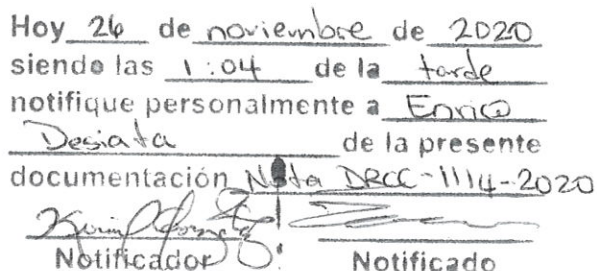 Hoy 26 de noviembre de 2020
siendo las 1:04 de la tarde
notifique personalmente a Enrico
Desiata de la presente
documentación Nota DRCC-1114-2020
Notificador Notificado